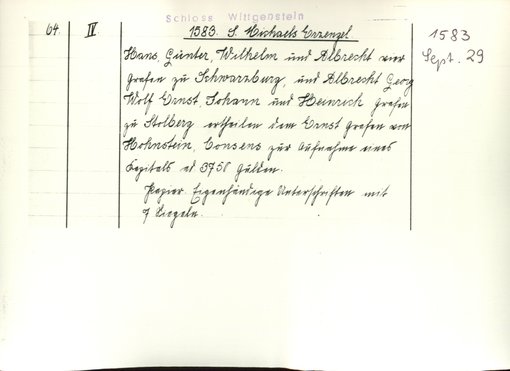 Schloss Wittgenstein
64. IV. 1583. S. Michaels Erzengel
1583
Sept. 29
Hans, Günter, Wilhelm und Albrecht vier
Grafen zu Schwarzburg, und Albrecht Georg
Wolf Ernst, Johann und Heinrich Grafen
zu Stolberg ertheilen dem Ernst Grafen von
Hohnstein, Consens zur Aufnahme eines
Kapitals ad 3750 Gulden.
Papier. Eigenhändige Unterschriften mit
7 Siegeln.